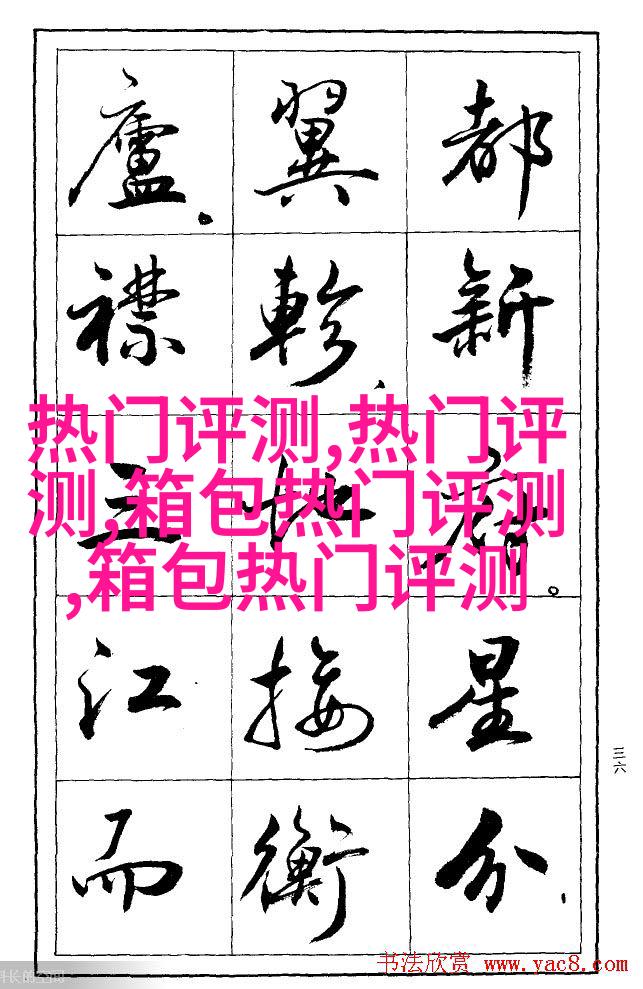 都新府。星分、
翼軫、地接衡
廬。襟三江而
热门评测,热门评
测,箱包热门评测
,箱包热门评测
三六
书法欣赏 www.yac8.com
长的空间